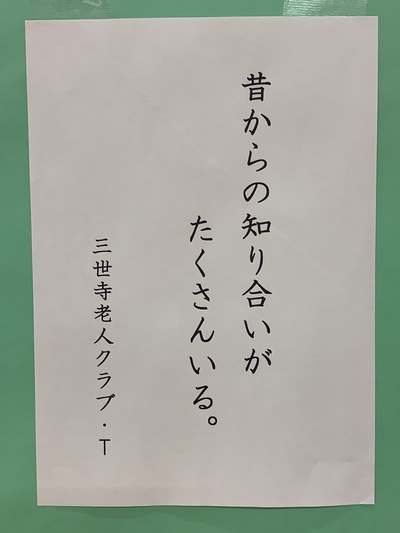 昔からの知り合いが
たくさんいる。
三世寺老人クラブ・T